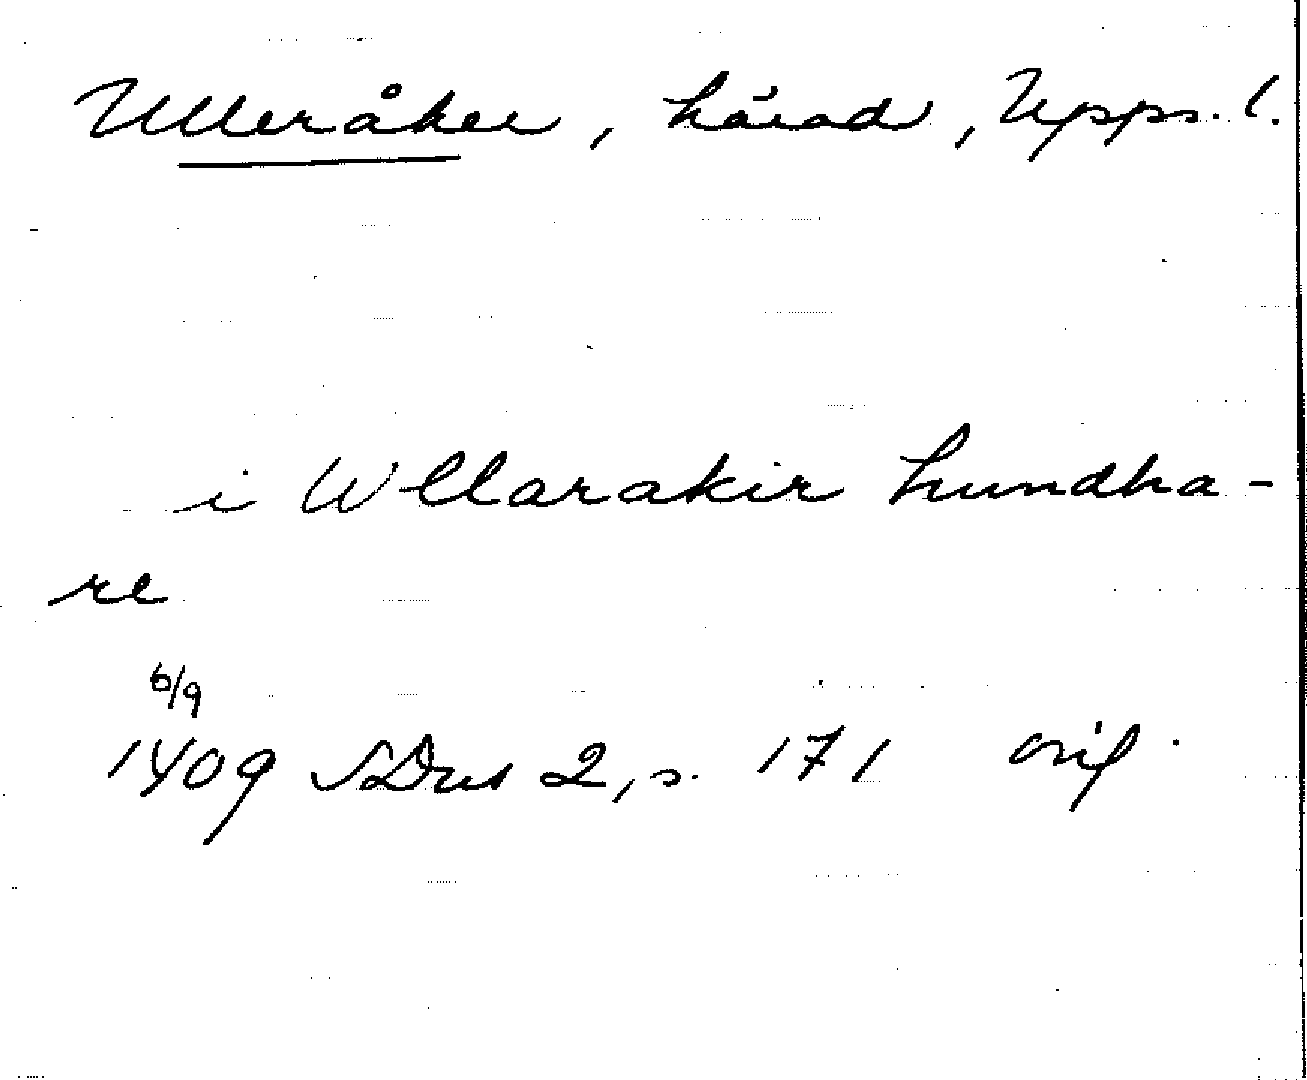 Ulleråker, härad, Upps. l.
i Wllarakir hundha-
re
6/9
1409 SDns 2, s. 171 orig.